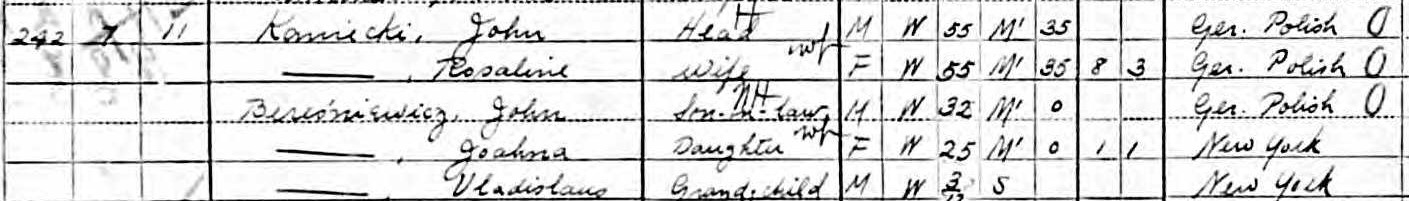 242 7 11 Kamiecki, John Head NH M W 55 M1 35 Ger. Polish O
——, Rosaline Wife wf F W 55 M1 35 8 3 Ger. Polish O
Bereśniewicz, John Son-in-law NH M W 32 M1 0 Ger. Polish O
——, Joahna Daughter wf F W 25 M1 0 1 1 New York
——, Vladislaus Grand-child M W 3/12 S New York